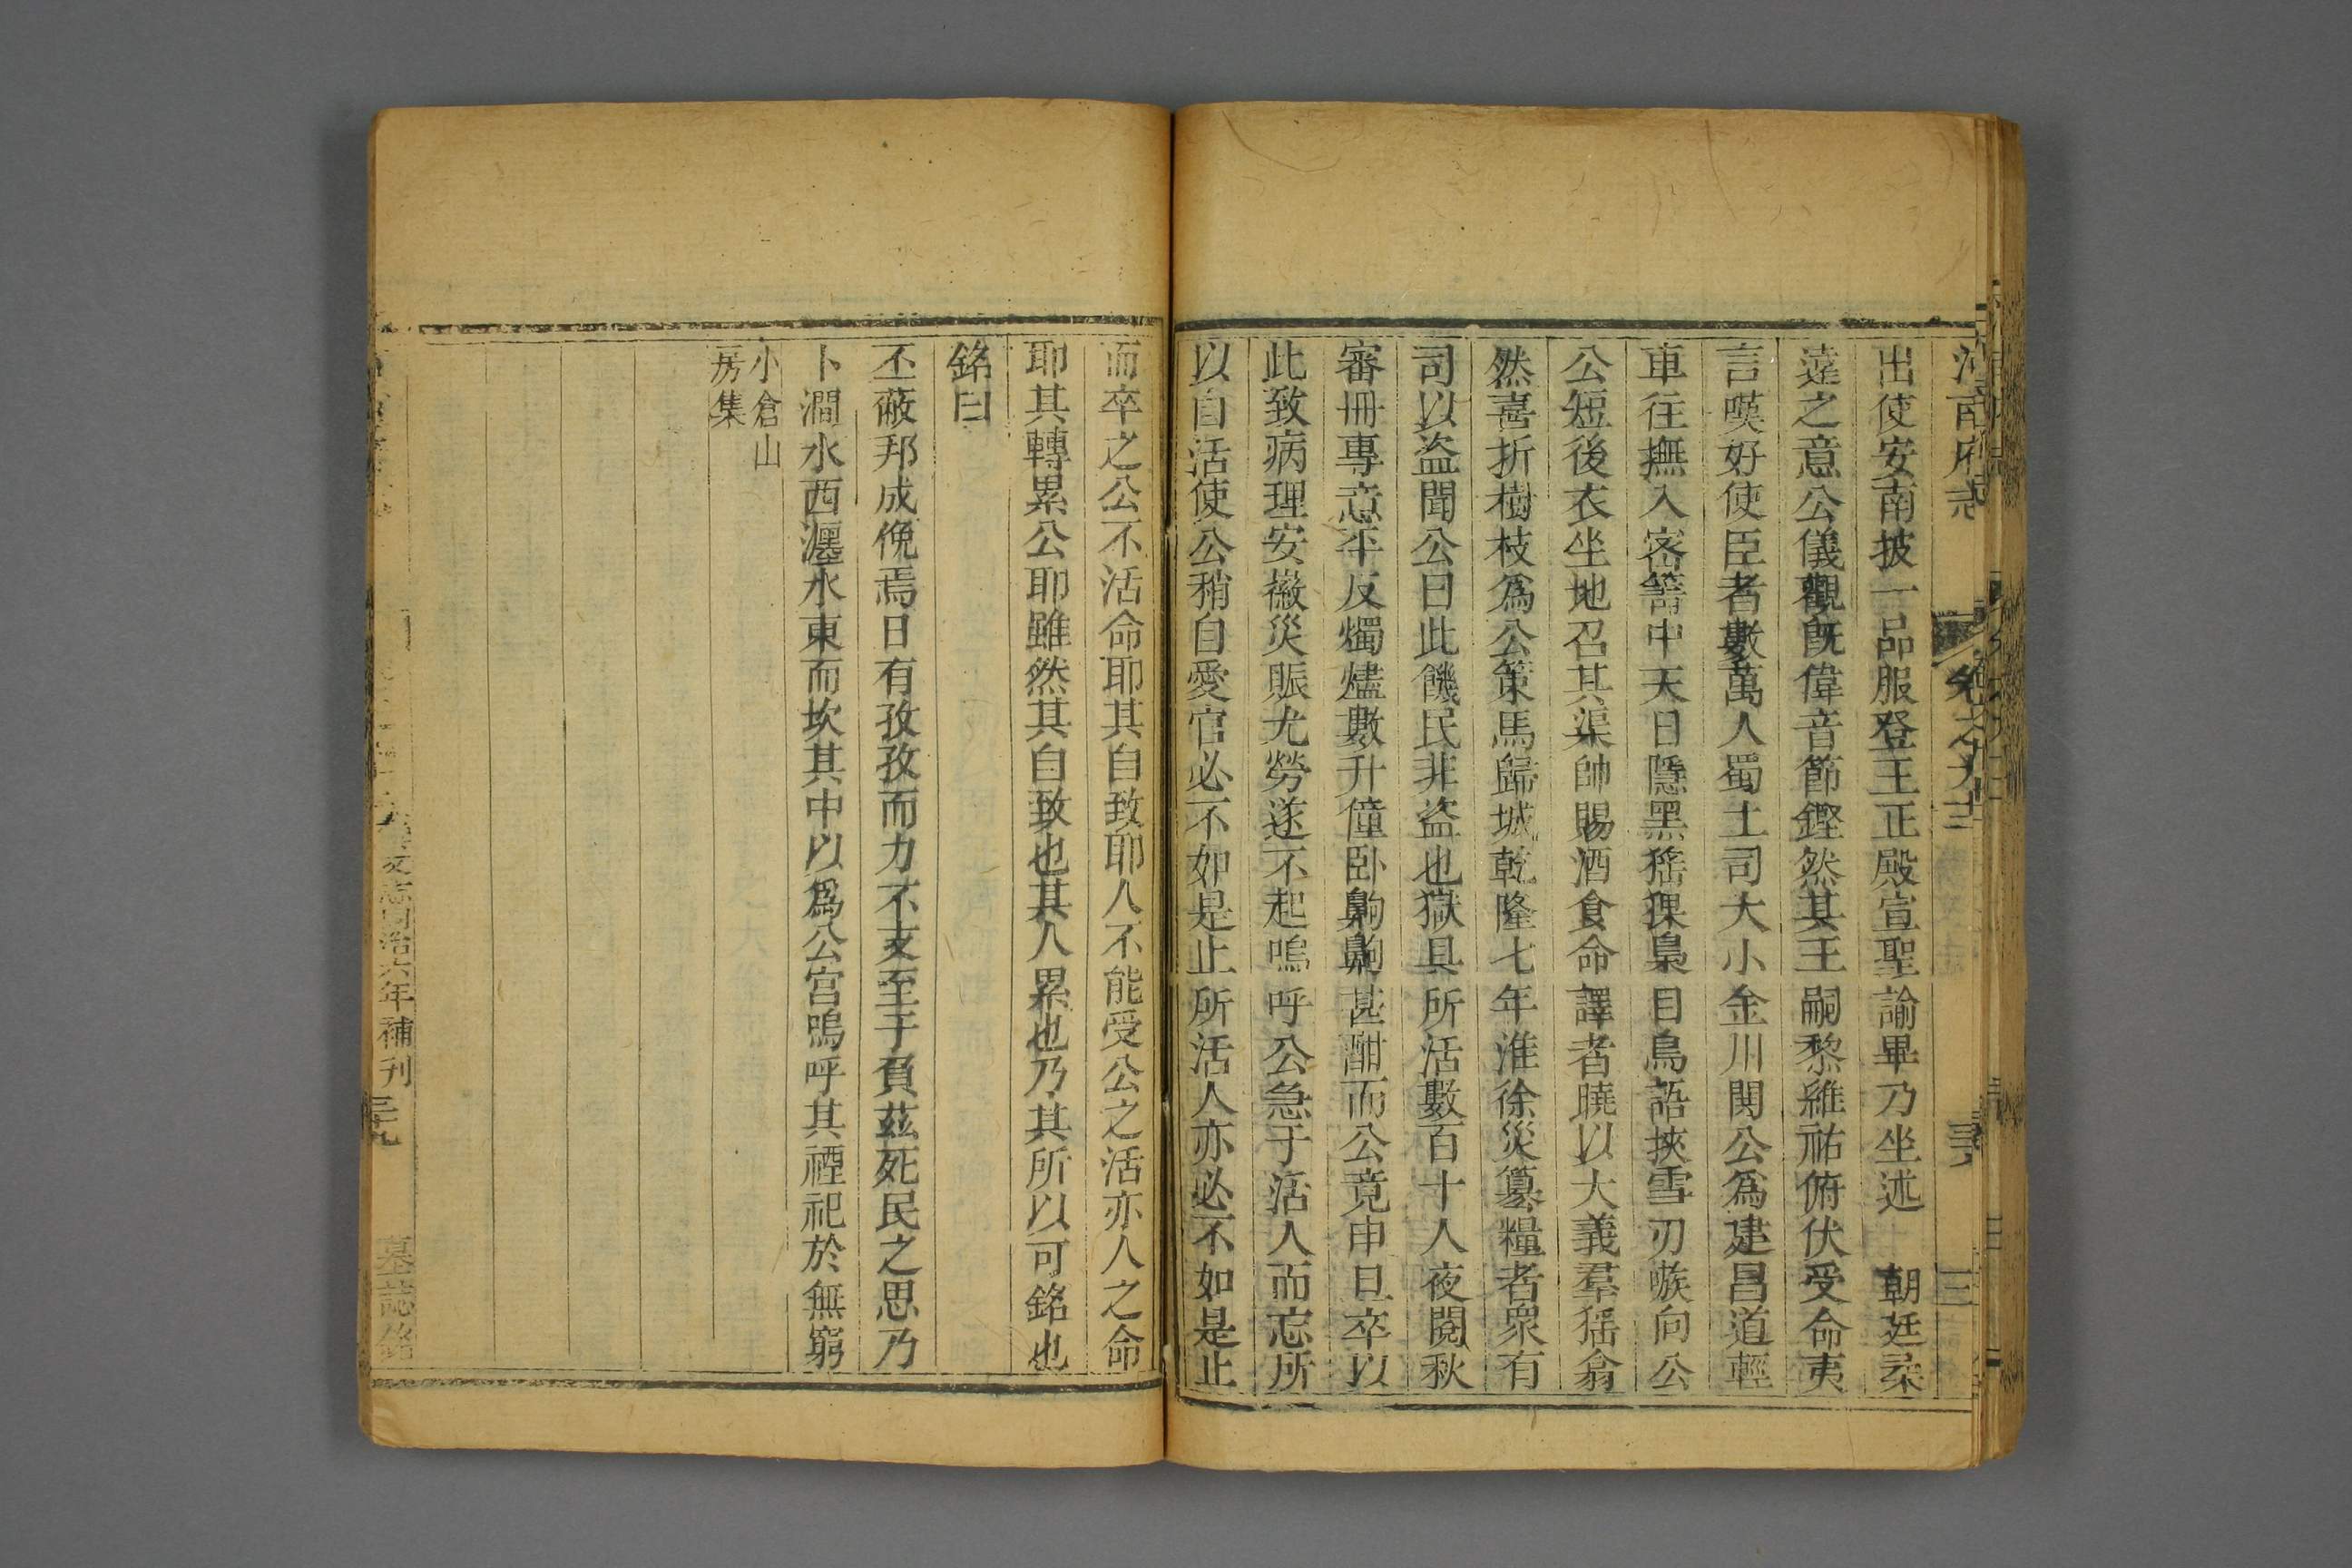 河南府志 卷之九十三
出使安南披一品服登王正殿宣聖諭畢乃坐述 朝廷柔
遠之意公儀觀旣偉音節鏗然其王嗣黎維祐俯伏受命夷
言嘆好使臣者數萬人蜀土司大小金川鬨公爲建昌道輕
車往撫入密箐中天日隱黑猺猓梟目鳥語挾雪刃嗾向公
公短後衣坐地召其渠帥賜酒食命譯者曉以大義羣猺翕
然喜折樹枝爲公策馬歸城乾隆七年淮徐災簒糧者衆有
司以盜聞公曰此饑民非盜也獄具所活數百十人夜閱秋
審冊專意平反燭燼數升僮卧齁齁甚酣而公竟申旦卒以
此致病理安徽災賑尤勞遂不起嗚呼公急于活人而忘所
以自活使公稍自愛官必不如是止所活人亦必不如是止
而卒之公不活命耶其自致耶人不能受公之活亦人之命
耶其轉累公耶雖然其自致也其人累也乃其所以可銘也
銘曰
丕蔽邦成俛焉日有孜孜而力不支至于負茲死民之思乃
卜澗水西瀍水東而坎其中以爲公宮嗚呼其禋祀於無窮
小倉山
房集
文志同治六年補刊 墓誌銘